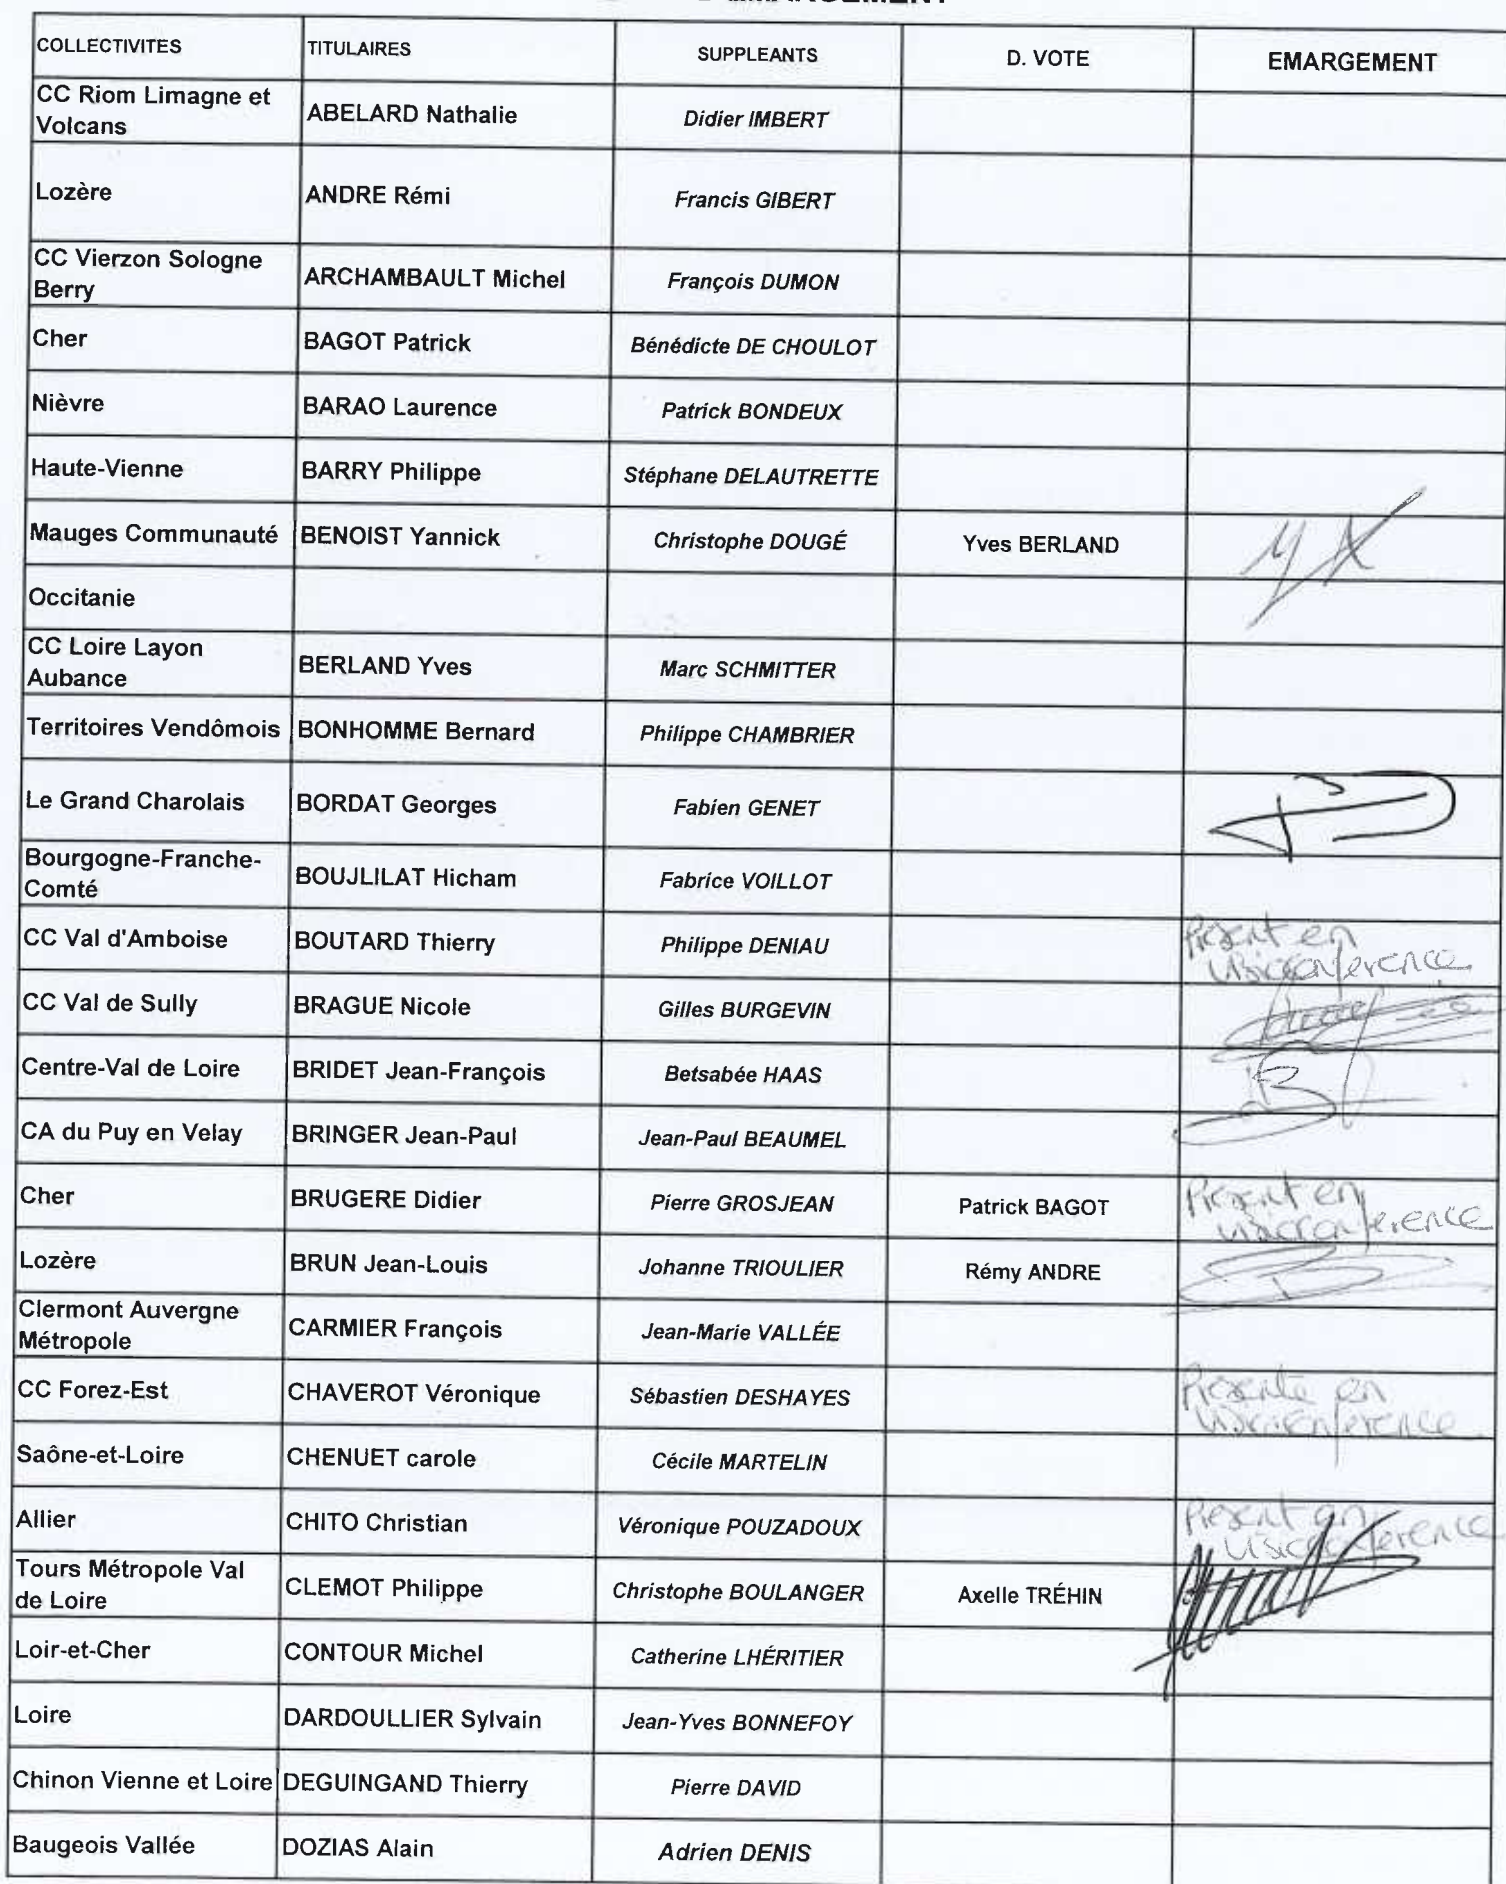 COLLECTIVITES TITULAIRES SUPPLEANTS D. VOTE EMARGEMENT
CC Riom Limagne et
Volcans ABELARD Nathalie Didier IMBERT
Lozère ANDRE Rémi Francis GIBERT
CC Vierzon Sologne
Berry ARCHAMBAULT Michel François DUMON
Cher BAGOT Patrick Bénédicte DE CHOULOT
Nièvre BARAO Laurence Patrick BONDEUX
Haute-Vienne BARRY Philippe Stéphane DELAUTRETTE
Mauges Communauté BENOIST Yannick Christophe DOUGÉ Yves BERLAND
Occitanie
CC Loire Layon
Aubance BERLAND Yves Marc SCHMITTER
Territoires Vendômois BONHOMME Bernard Philippe CHAMBRIER
Le Grand Charolais BORDAT Georges Fabien GENET
Bourgogne-Franche-
Comté BOUJLILAT Hicham Fabrice VOILLOT
CC Val d'Amboise BOUTARD Thierry Philippe DENIAU Présent en
visioconférence
CC Val de Sully BRAGUE Nicole Gilles BURGEVIN
Centre-Val de Loire BRIDET Jean-François Betsabée HAAS
CA du Puy en Velay BRINGER Jean-Paul Jean-Paul BEAUMEL
Cher BRUGERE Didier Pierre GROSJEAN Patrick BAGOT Présent en
visioconférence
Lozère BRUN Jean-Louis Johanne TRIOULIER Rémy ANDRE
Clermont Auvergne
Métropole CARMIER François Jean-Marie VALLÉE
CC Forez-Est CHAVEROT Véronique Sébastien DESHAYES Présente en
visioconférence
Saône-et-Loire CHENUET carole Cécile MARTELIN
Allier CHITO Christian Véronique POUZADOUX Présent en
visioconférence
Tours Métropole Val
de Loire CLEMOT Philippe Christophe BOULANGER Axelle TRÉHIN
Loir-et-Cher CONTOUR Michel Catherine LHÉRITIER
Loire DARDOULLIER Sylvain Jean-Yves BONNEFOY
Chinon Vienne et Loire DEGUINGAND Thierry Pierre DAVID
Baugeois Vallée DOZIAS Alain Adrien DENIS